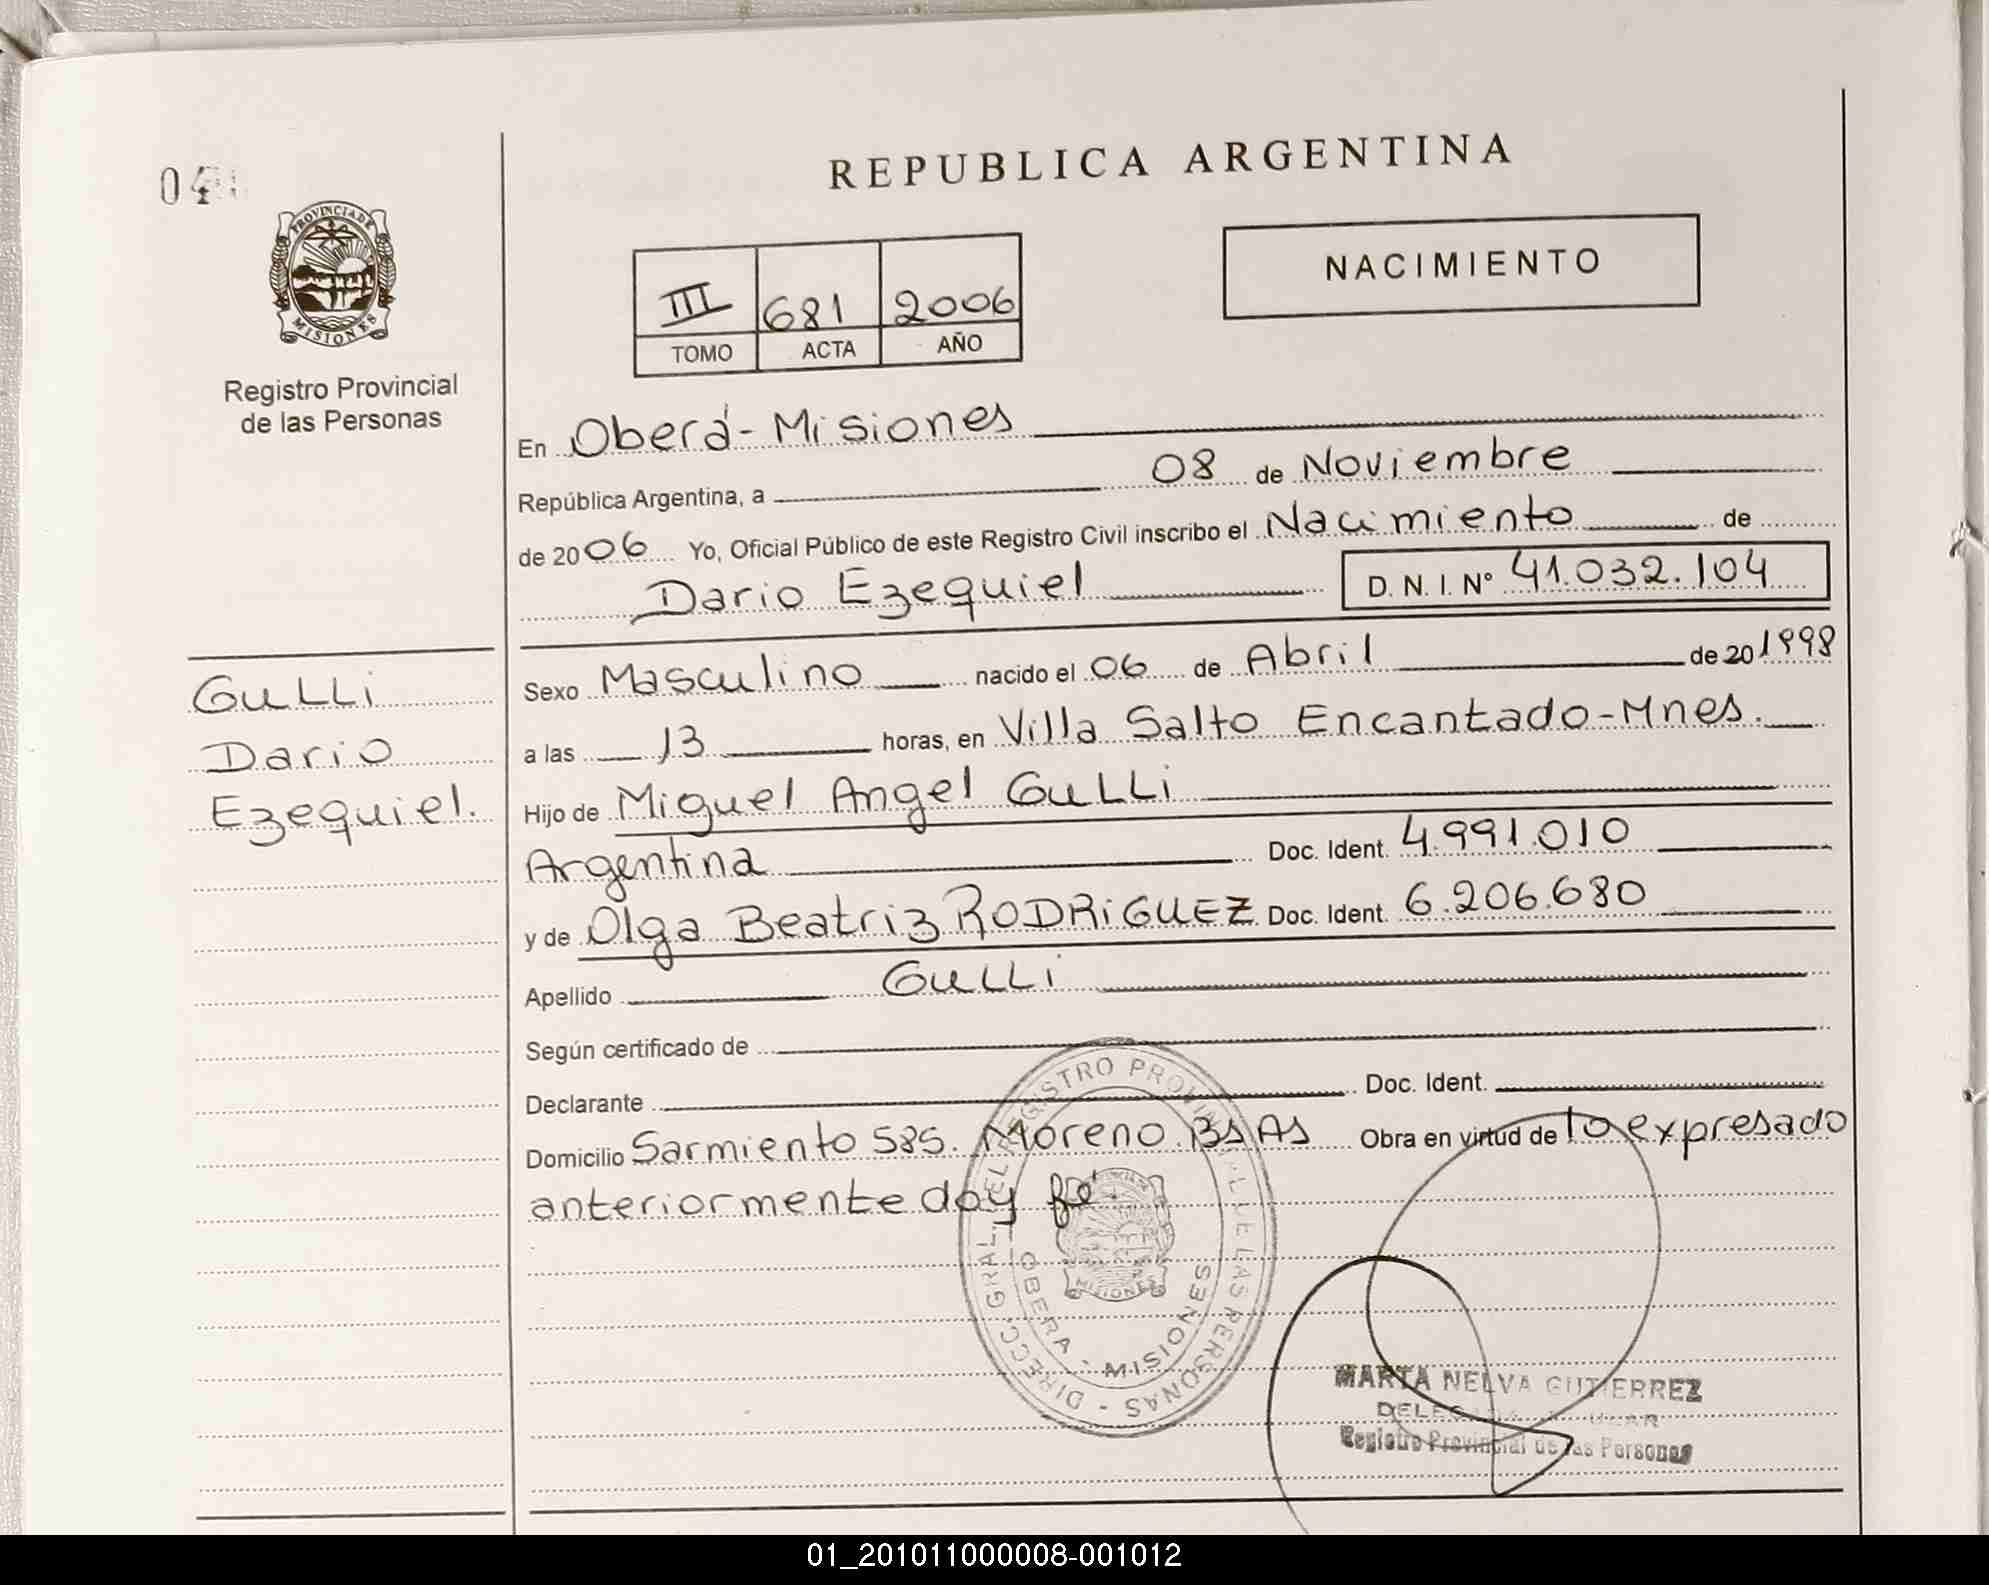 04
PROVINCIA DE
MISIONES
Registro Provincial
de las Personas
REPUBLICA ARGENTINA
III 681 2006
TOMO ACTA AÑO
NACIMIENTO
En Oberá - Misiones
República Argentina, a 08 de Noviembre
de 2006 Yo, Oficial Público de este Registro Civil inscribo el Nacimiento de
Dario Ezequiel D. N. I. N° 41.032.104
GULLi
Dario
Ezequiel.
Sexo Masculino nacido el 06 de Abril de 20 1998
a las 13 horas, en Villa Salto Encantado - Mnes.
Hijo de Miguel Angel GULLi
Argentina Doc. Ident. 4.991.010
y de Olga Beatriz RODRiGUEZ Doc. Ident. 6.206.680
Apellido GULLi
Según certificado de
Declarante Doc. Ident.
Domicilio Sarmiento 585. Moreno Bs As Obra en virtud de lo expresado
anteriormente doy fé
DIRECC. GRAL. DEL REGISTRO PROVINCIAL DE LAS PERSONAS
OBERA - MISIONES
MISIONES
MARTA NELVA GUTIERREZ
Registro Provincial de las Personas
01_201011000008-001012